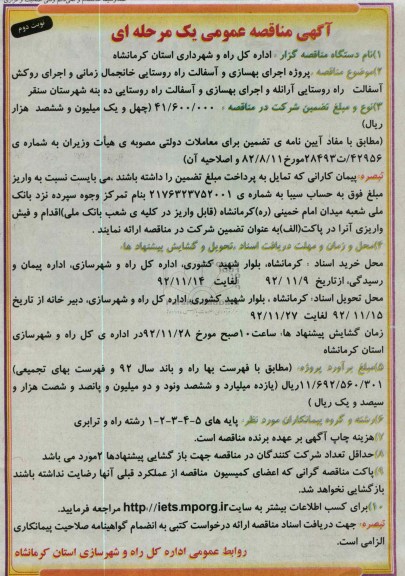 نوبت دوم
آگهی مناقصه عمومی یک مرحله ای
۱)نام دستگاه مناقصه گزار : اداره کل راه و شهرداری استان کرمانشاه
۲)موضوع مناقصه : پروژه اجرای بهسازی و آسفالت راه روستایی خانجمال زمانی و اجرای روکش
آسفالت راه روستایی آرانله و اجرای بهسازی و آسفالت راه روستایی ده بنه شهرستان سنقر
۳)نوع و مبلغ تضمین شرکت در مناقصه : ۴۱/۶۰۰/۰۰۰ (چهل و یک میلیون و ششصد هزار
ریال)
(مطابق با مفاد آیین نامه ی تضمین برای معاملات دولتی مصوبه ی هیأت وزیران به شماره ی
۴۲۹۵۶/ت۲۸۴۹۳مورخ۸۲/۸/۱۱ و اصلاحیه آن)
تبصره:پیمان کارانی که تمایل به پرداخت مبلغ تضمین را داشته باشند .می بایست نسبت به واریز
مبلغ فوق به حساب سیبا به شماره ی ۲۱۷۶۳۲۳۷۵۲۰۰۱ بنام تمرکز وجوه سپرده نزد بانک
ملی شعبه میدان امام خمینی (ره)کرمانشاه (قابل واریز در کلیه ی شعب بانک ملی)اقدام و فیش
واریزی آنرا در پاکت(الف)به عنوان تضمین شرکت در مناقصه ارائه نمایند .
۴)محل و زمان و مهلت دریافت اسناد ،تحویل و گشایش پیشنهاد ها:
محل خرید اسناد : کرمانشاه، بلوار شهید کشوری، اداره کل راه و شهرسازی، اداره پیمان و
رسیدگی. ازتاریخ ۹۲/۱۱/۹ لغایت ۹۲/۱۱/۱۴
محل تحویل اسناد: کرمانشاه ، بلوار شهید کشوری، اداره کل راه و شهرسازی، دبیر خانه از تاریخ
۹۲/۱۱/۱۵ لغایت ۹۲/۱۱/۲۷
زمان گشایش پیشنهاد ها: ساعت۱۰صبح مورخ ۹۲/۱۱/۲۸در اداره ی کل راه و شهرسازی
استان کرمانشاه
۵)مبلغ برآورد پروژه: (مطابق با فهرست بها راه و باند سال ۹۲ و فهرست بهای تجمیعی)
۱۱/۶۹۲/۵۶۰/۳۰۱ریال (یازده میلیارد و ششصد ونود و دو میلیون و پانصد و شصت هزار و
سیصد و یک ریال )
۶)رشته و گروه پیمانکاران مورد نظر: پایه های ۵-۴-۳-۲-۱ رشته راه و ترابری
۷)هزینه چاپ آگهی بر عهده برنده مناقصه است.
۸)حداقل تعداد شرکت کنندگان در مناقصه جهت باز گشایی پیشنهادها ۲مورد می باشد
۹)پاکت مناقصه گرانی که اعضای کمیسیون مناقصه از عملکرد قبلی آنها رضایت نداشته باشند
بازگشایی نخواهد شد.
۱۰)برای کسب اطلاعات بیشتر به سایتhttp://iets.mporg.ir مراجعه فرمایید.
تبصره: جهت دریافت اسناد مناقصه ارائه درخواست کتبی به انضمام گواهینامه صلاحیت پیمانکاری
الزامی است.
روابط عمومی اداره کل راه و شهرسازی استان کرمانشاه